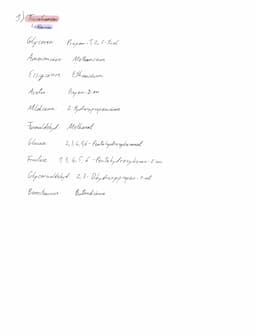 Glycerin Propan-1,2,3-triol
Ameisensäure Methansäure
Essigsäure Ethansäure
Aceton Propan-2-on
Milchsäure 2-Hydroxypropansäure
Formaldehyd Methanal
Glucose 2,3,4,5,6-Pentahydroxyhexanal
Fructose 1,3,4,5,6-Pentahydroxyhexan-2-on
Glycerinaldehyd 2,3-Dihydroxypropan-1-al
Bernsteinsäure Butandisäure